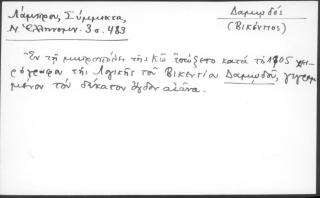 Λάμπρος, Σύμμικτα,
Δαμωδός
Ν. Ἑλληνομν. 3 σ. 483
(Βικέντιος)
Ἐν τῇ μητροπόλει τῆς Κῶ ἐσώζετο κατὰ τὸ 1905 χει-
ρόγραφον τῆς Λογικῆς τοῦ Βικεντίου Δαμωδοῦ, γεγραμ-
μένον τὸν δέκατον ὄγδοον αἰῶνα.